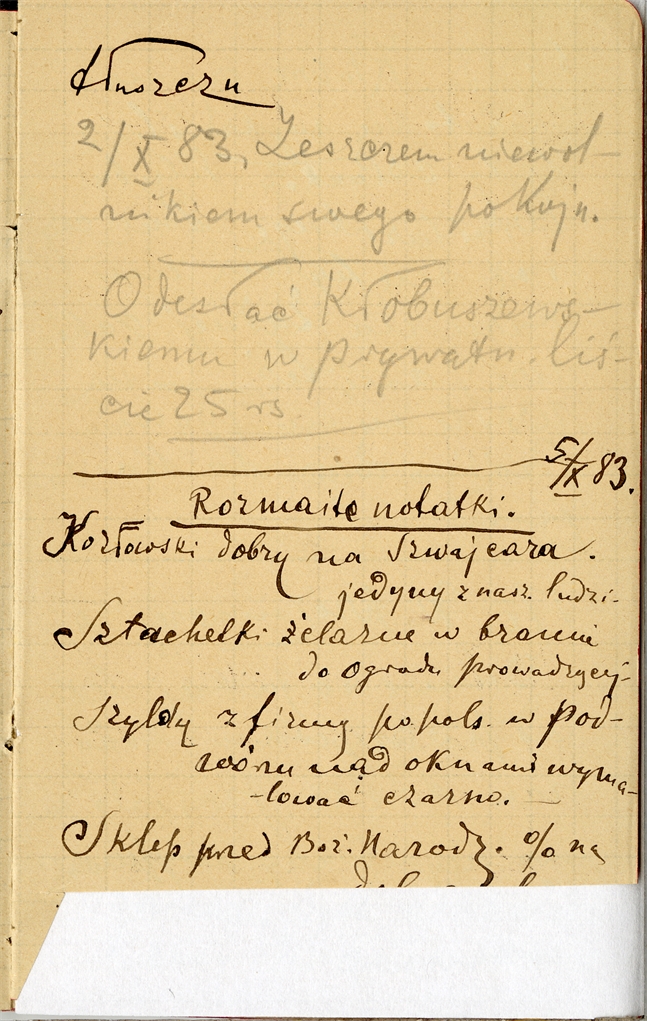 tłuszczu
2/X 83, Leszczem niewol-
nikiem swego pokoju.
Odesłać Kłobuszews-
kiemu w prywatn. liś-
cie 25 rs.
5/IX 83.
Rozmaite notatki.
Kozłowski dobry na Szwajcara.
jedyny z nasz. ludzi.
Sztachetki żelazne w bramie
do ogrodu prowadzącej.
Szyldy z firmy po pols. w Pod-
wórzu nad oknami wyma-
-lować czarno.
Sklep przed Boż. Narodz. % na